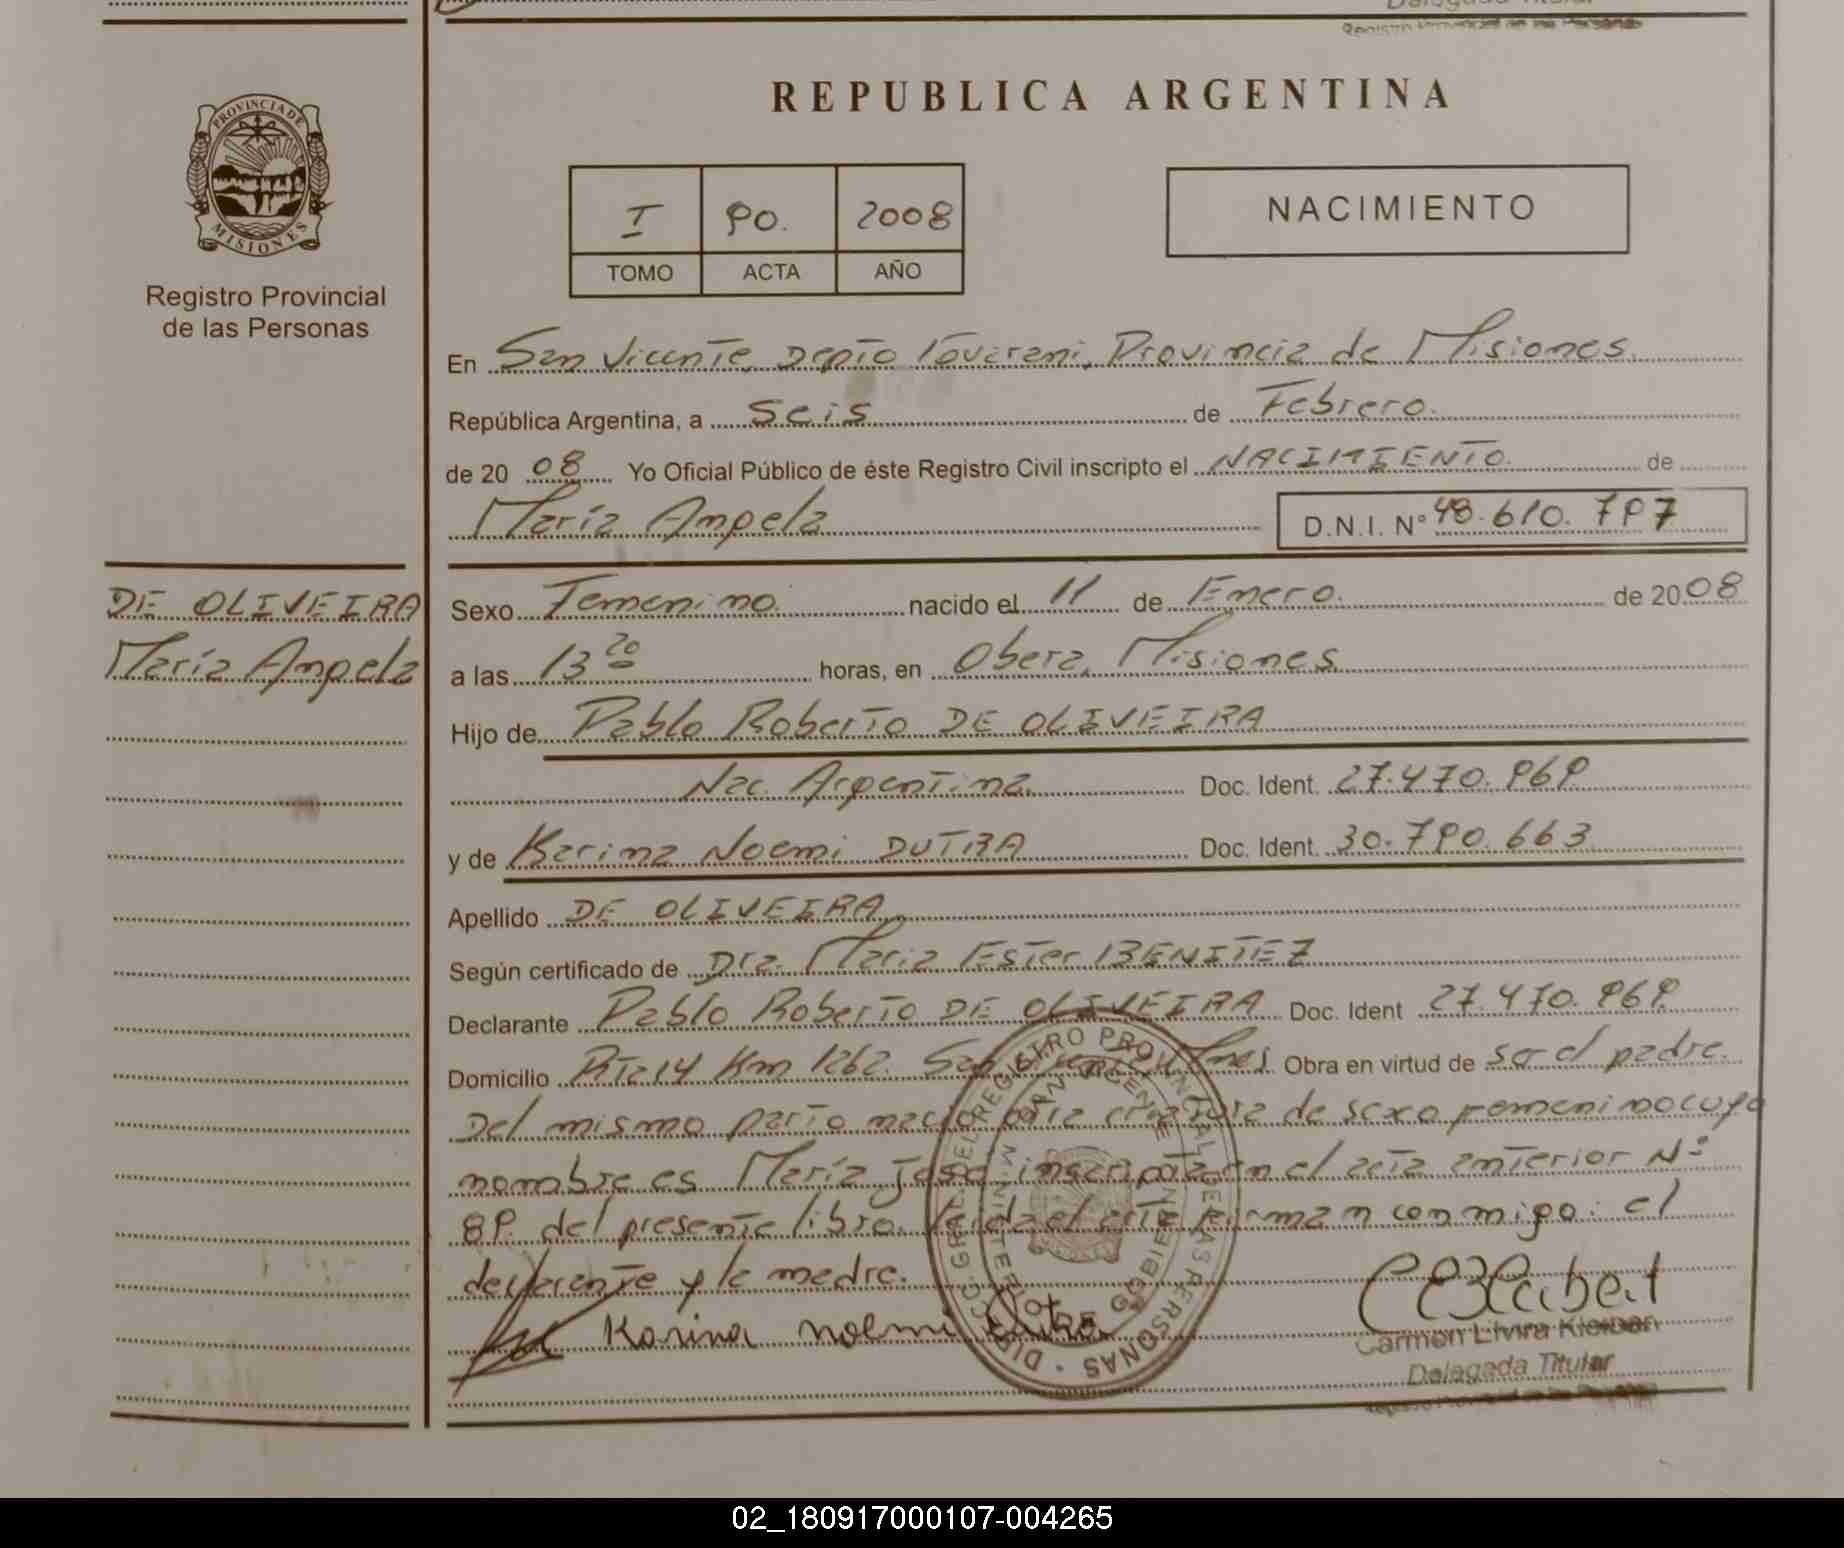 REPUBLICA ARGENTINA
PROVINCIA DE
MISIONES
Registro Provincial
de las Personas
I 90. 2008
TOMO ACTA AÑO
NACIMIENTO
En San Vicente, Depto Guarani, Provincia de Misiones.
República Argentina, a seis de Febrero.
de 20 08 Yo Oficial Público de éste Registro Civil inscripto el NACIMIENTO de
María Angela
D.N.I. N° 48.610.797
DE OLIVEIRA
María Angela
Sexo Femenino. nacido el 11 de Enero. de 2008
a las 13 20 horas, en Obera, Misiones
Hijo de Pablo Roberto DE OLIVEIRA
Nac. Argentina. Doc. Ident. 27.470.969
y de Karina Noemi DUTRA Doc. Ident. 30.790.663
Apellido DE OLIVEIRA
Según certificado de Dra. Maria Ester BENITEZ
Declarante Pablo Roberto DE OLIVEIRA Doc. Ident 27.470.969
Domicilio Rta 14 Km 1262. San Obra en virtud de ser el padre.
Del mismo parto nació otra criatura de sexo femenino cuyo
nombre es María José inscripta en el acta anterior N°
89. del presente libro. Leida el acta firman conmigo: el
declarante y la madre.
Karina Noemi Dutra
Carmen
Delegada Titular
02_180917000107-004265